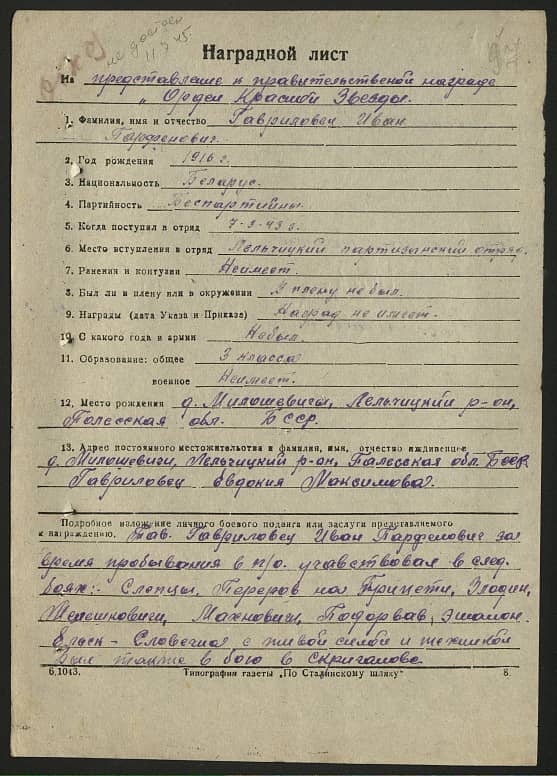 не достоин
11.7.45.
Наградной лист
На представление к правительственой награде
„Орден Красной Звезды.
1. Фамилия, имя и отчество Гавриловец Иван
Парфенович.
2. Год рождения 1916 г.
3. Национальность Беларус.
4. Партийность Беспартийны.
5. Когда поступил в отряд 7-3-43 г.
6. Место вступления в отряд Лельчицкий партизанский отряд.
7. Ранения и контузии Неимеет.
8. Был ли в плену или в окружении У плену небыл.
9. Награды (дата Указа и Приказа) Наград не имеет.
10. С какого года в армии Небыл.
11. Образование: общее 3 класса
военное Неимеет.
12. Место рождения д. Милошевичи, Лельчицкий р-он,
Полесская обл. БССР.
13. Адрес постоянного местожительства и фамилия, имя, отчество иждивенцев
д. Милошевичи, Лельчицкий р-он, Полесская обл. БССР
Гавриловец Евдокия Максимовна.
Подробное изложение личного боевого подвига или заслуги представляемого
к награждению. Тов. Гавриловец Иван Парфенович за
время пробывания в п/о. учавствовал в след.
боях:- Слепцы, Переров на Припети, Злодин,
Махновичи, Подорвав эшалон.
Ельск - Словечна с живой силой и техникой
Был также в бою в Скригалове
6.1043. Типография газеты „По Сталинскому шляху" 8.